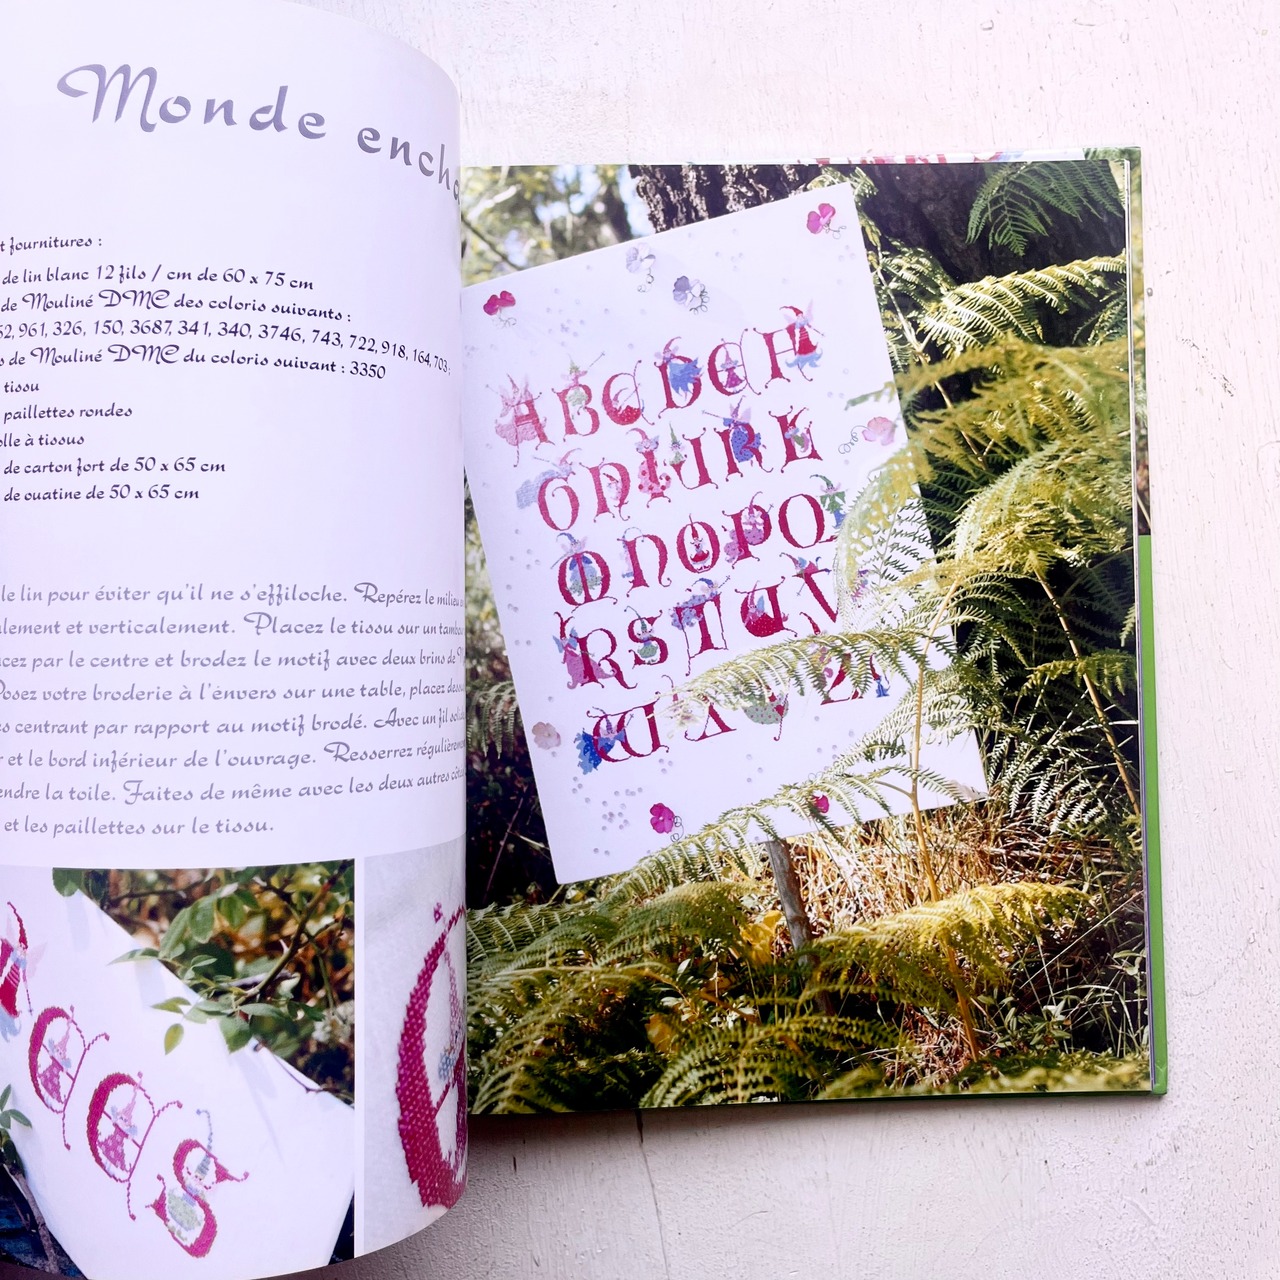 Monde encha
t fournitures :
de lin blanc 12 fils / cm de 60 x 75 cm
de Mouliné DMC des coloris suivants :
52, 961, 326, 150, 3687, 341, 340, 3746, 743, 722, 918, 164, 703 ;
s de Mouliné DMC du coloris suivant : 3350
tissu
paillettes rondes
olle à tissus
de carton fort de 50 x 65 cm
de ouatine de 50 x 65 cm
le lin pour éviter qu'il ne s'effiloche. Repérez le milieu
lement et verticalement. Placez le tissu sur un tambou
cez par le centre et brodez le motif avec deux brins de
Posez votre broderie à l'envers sur une table, placez dessu
s centrant par rapport au motif brodé. Avec un fil solid
r et le bord inférieur de l'ouvrage. Resserrez régulièrement
endre la toile. Faites de même avec les deux autres côtés
et les paillettes sur le tissu.
A B C D E F
G H I J K L
M N O P Q
R S T U V
W X Y Z